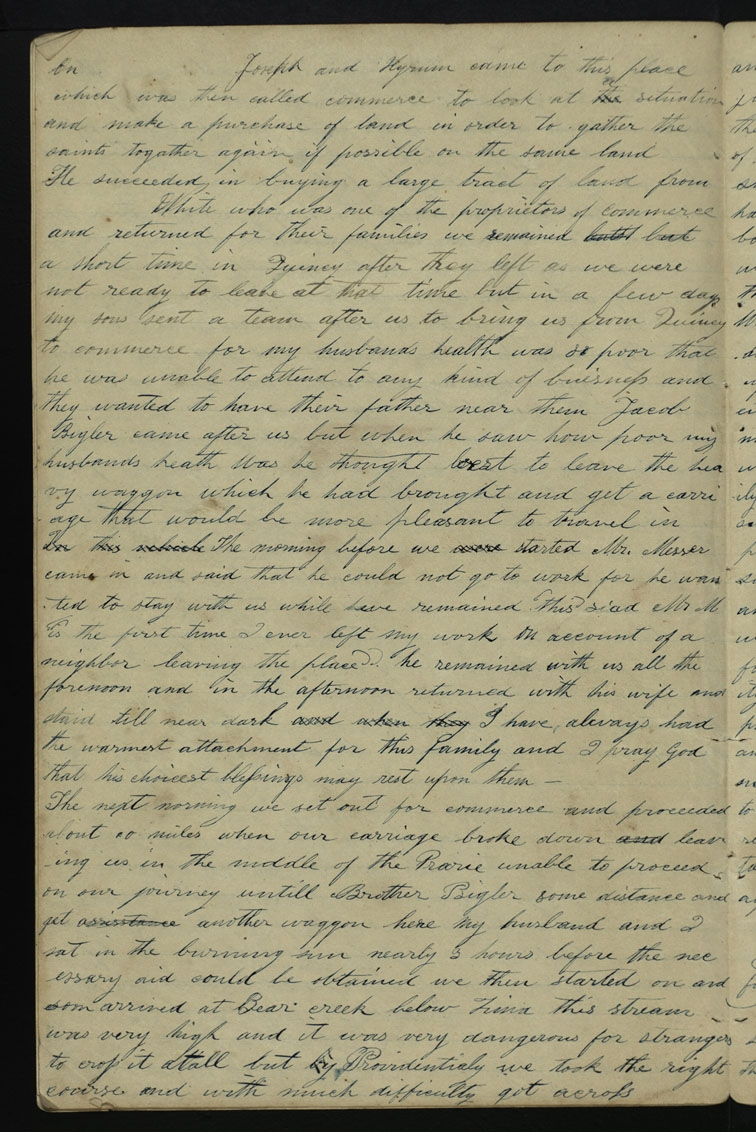 On Joseph and Hyrum came to this place
which was then called commerce to look at the situation
and make a purchase of land in order to gather the
saints togather again if possible on the same land
He succeeded in buying a large tract of land from
White who was one of the proprietors of commerce
and returned for their families we remained but
a short time in Quincy after they left as we were
not ready to leave at that time but in a few days
my son sent a team after us to bring us from Quincy
to commerce for my husbands health was so poor that
he was unable to attend to any kind of buisness and
they wanted to have their father near them Jacob
Bigler came after us but when he saw how poor my
husbands heath was he thought best to leave the hea
vy waggon which he had brought and get a carri
age that would be more pleasant to travel in
In this vehicle The morning before we were started Mr. Messer
came in and said that he could not go to work for he wan
ted to stay with us while we remained This siad Mr M
is the first time I ever left my work on account of a
neighbor leaving the place he remained with us all the
forenoon and in the afternoon returned with his wife and
staid till near dark and when they I have always had
the warmest attachment for this family and I pray God
that his choicest blessings may rest upon them —
The next morning we set out for commerce and proceeded
about miles when our carriage broke down and leav
ing us in the middle of the Prarie unable to proceed
on our journey untill Brother Bigler some distance and
get assistance another waggon here my husband and I
sat in the burning sun nearly 3 hours before the nec
essary aid could be obtained we then started on and
soon arrived at Bear creek below Lima this stream
was very high and it was very dangerous for strangers
to cross it atall but Providentialy we took the right
course and with much difficulty got across